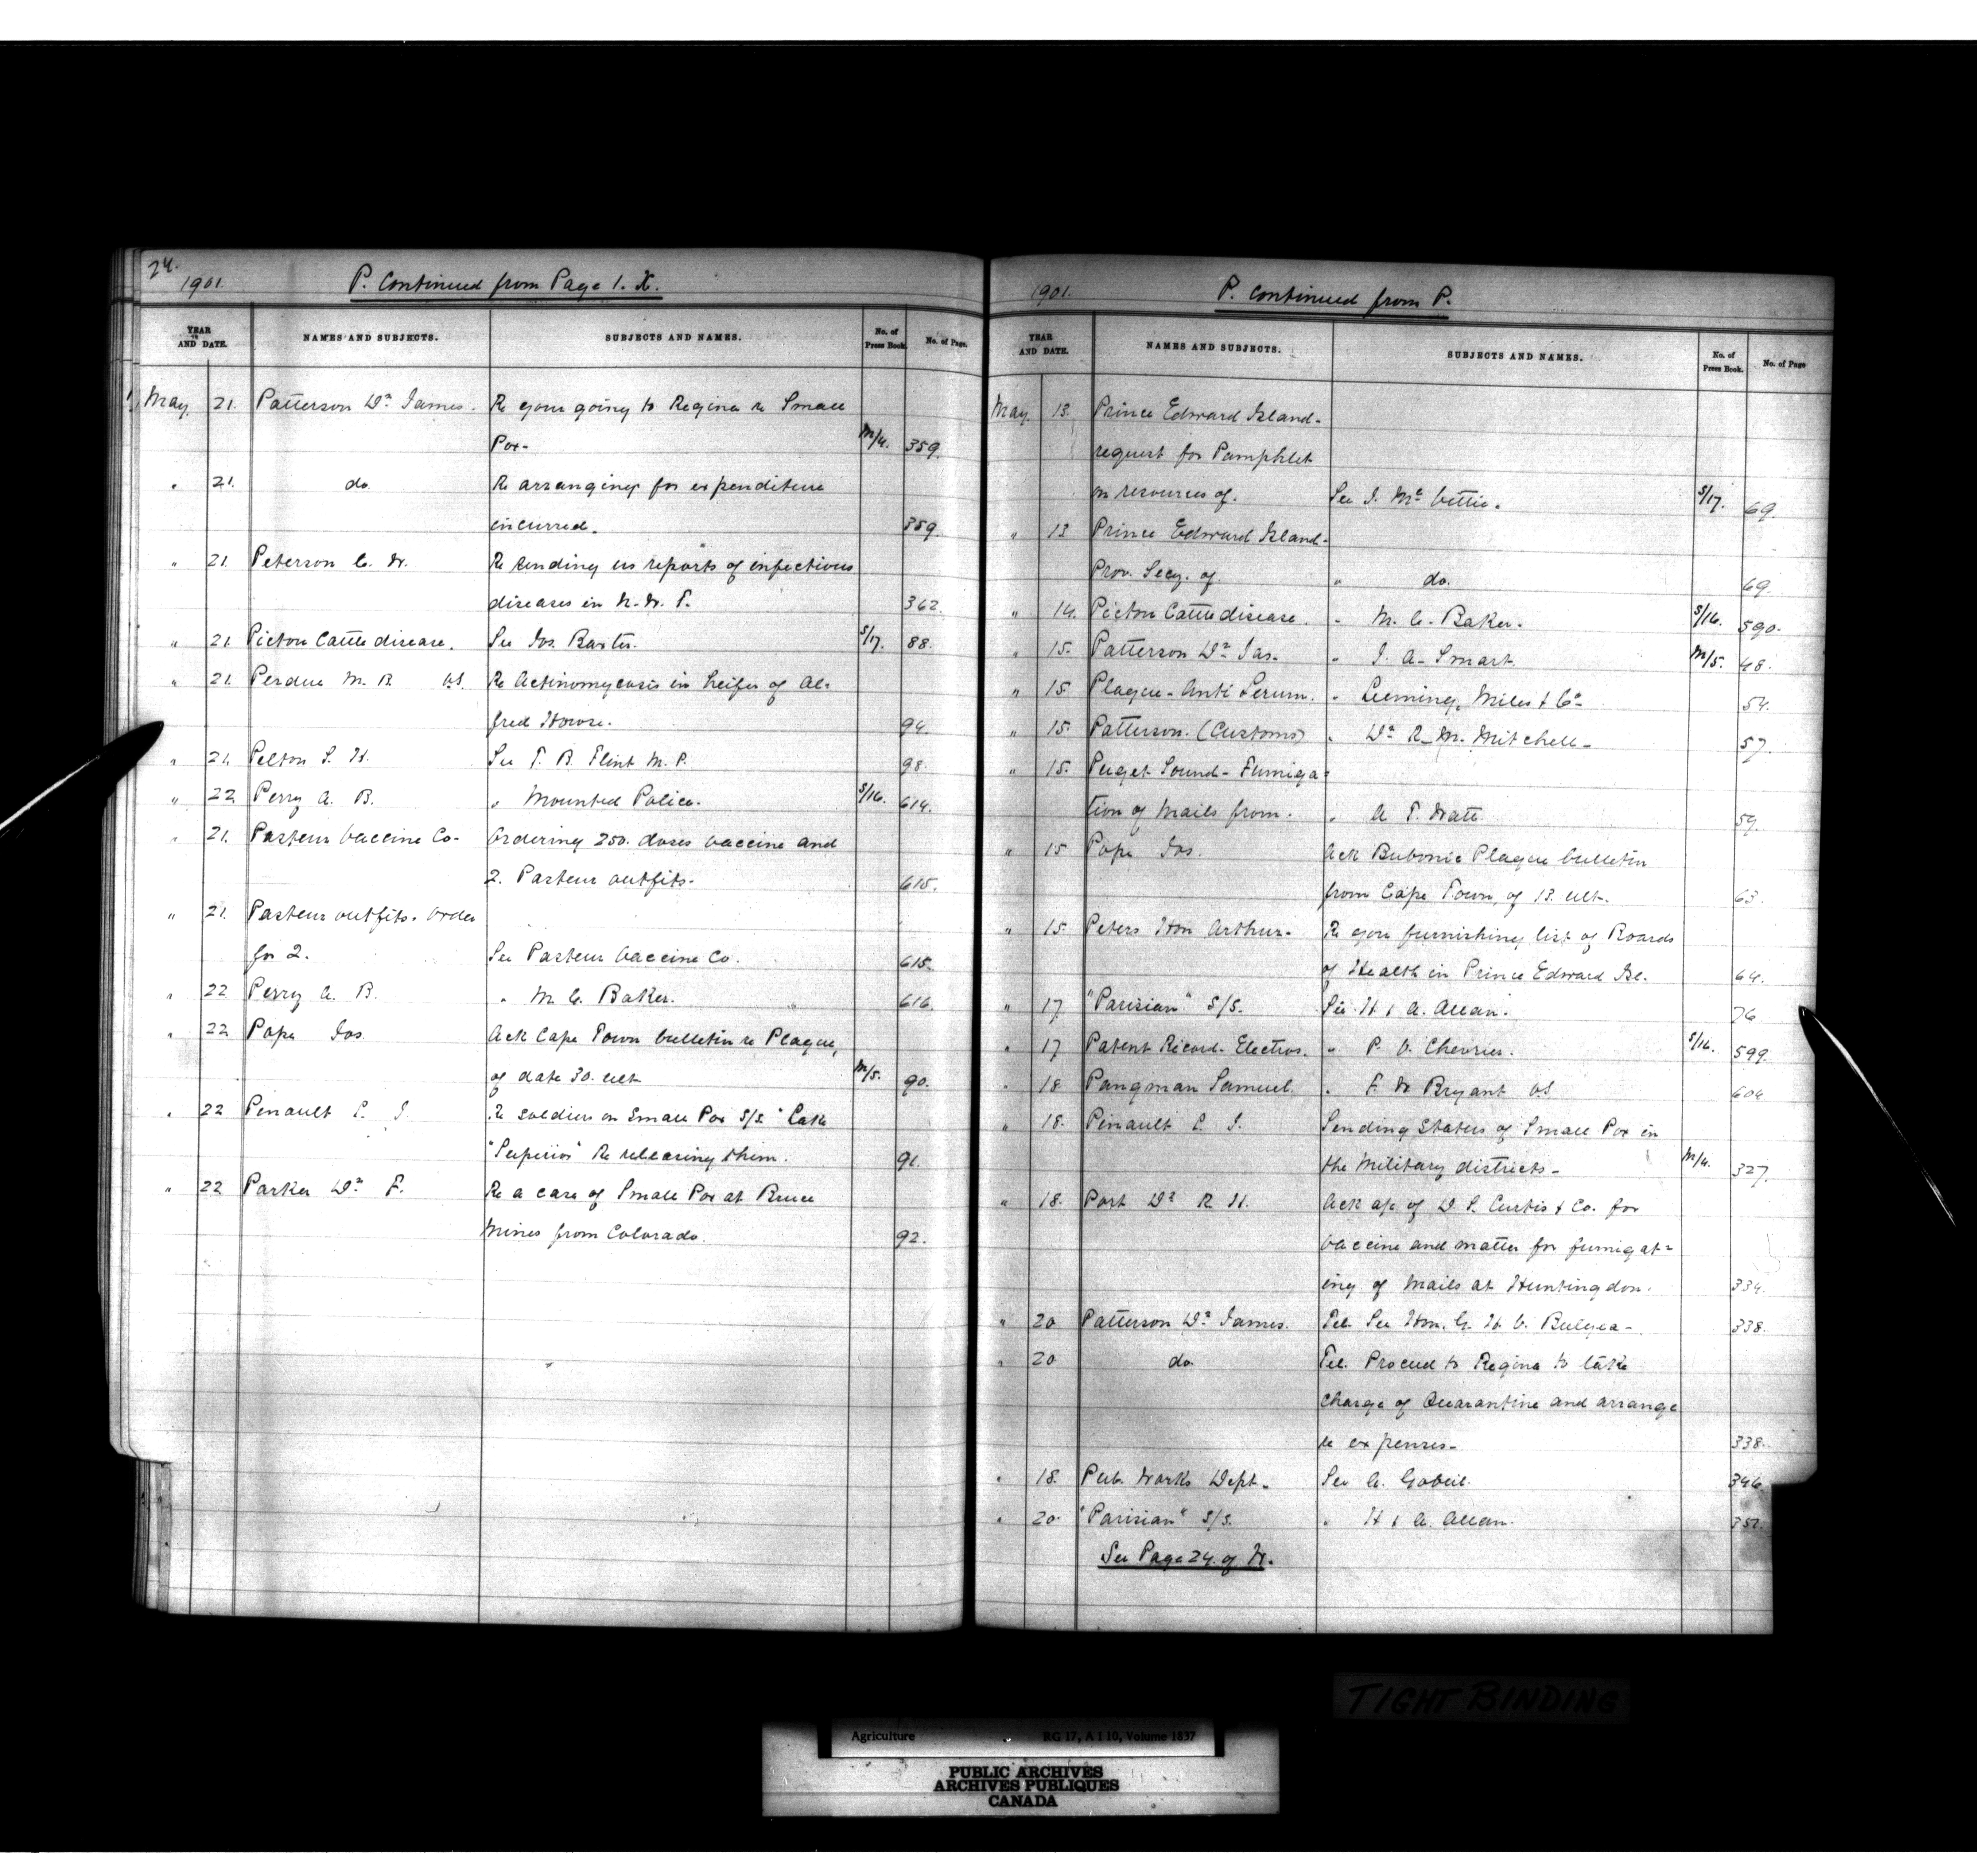 24.
1901. P. Continued from Page 1. X.
YEAR AND DATE. NAMES AND SUBJECTS. SUBJECTS AND NAMES. No. of Press Book. No. of Page.
May 21. Patterson Dr. James. Re your going to Regina re Small
Pox- M/4. 359.
" 21. do. Re arranging for expenditure
incurred. 359.
" 21. Peterson C. W. Re sending us reports of infectious
diseases in N. W. T. 362.
" 21. Picton Cattle disease. See Jos. Baxter. S/17. 88.
" 21. Perdue M. B. VS. Re Actinomycosis in heifer of Al=
fred Howse. 94.
" 21. Pelton S. H. See T. B. Flint M. P. 98.
" 22 Perry A. B. " Mounted Police. S/16. 614.
" 21. Pasteur Vaccine Co- Ordering 250. doses vaccine and
2. Pasteur outfits- 615.
" 21. Pasteur outfits. Order
for 2. See Pasteur Vaccine Co. 615.
" 22 Perry A. B. " M. C. Baker. 616.
" 22 Pope Jos. Ack Cape Town bulletin re Plague,
of date 30. ult. M/5. 90.
" 22 Pinault L. J. Re soldiers on Small Pox S/S. "Lake
"Superior" Re releasing them. 91.
" 22 Parker Dr. F. Re a case of Small Pox at Bruce
Mines from Colorado. 92.
1901. P. Continued from P.
YEAR AND DATE. NAMES AND SUBJECTS. SUBJECTS AND NAMES. No. of Press Book. No. of Page
May 13. Prince Edward Island-
request for Pamphlet
on resources of. See J. Mc Vittie. S/17. 69.
" 13 Prince Edward Island-
Prov. Secy. of. " do. 69.
" 14. Picton Cattle disease. " M. C. Baker. S/16. 590.
" 15. Patterson Dr. Jas. " J. A. Smart. M/5. 48.
" 15 Plague-Anti Serum. " Leeming, Miles & Co- 54.
" 15. Patterson. (Customs) " Dr. R. M. Mitchell- 57.
" 15. Puget Sound-Fumiga=
tion of Mails from. " A. T. Watt. 59.
" 15 Pope Jos. Ack Bubonic Plague bulletin
from Cape Town, of 13. ult. 63.
" 15 Peters Hon Arthur- Re your furnishing list of Boards
of Health in Prince Edward Isl. 64.
" 17 "Parisian" S/S. See H & A. Allan. 76
" 17 Patent Record-Electros. " P. V. Chevrier. S/16. 599.
" 18 Pangman Samuel. " F. W Bryant VS 604
" 18. Pinault L. J. Sending Status of Small Pox in
the Military districts- M/4. 327.
" 18. Port Dr. R. H. Ack a/c of D. S. Curtis & Co. for
Vaccine and matter for fumigat=
ing of Mails at Huntingdon. 334.
" 20 Patterson Dr. James. Tel. See Hon. G. H. V. Bulyea- 338.
" 20 do Tel. Proceed to Regina to take
charge of Quarantine and arrange
re expenses- 338.
" 18. Pub. Works Dept- See A. Gobeil. 346.
" 20. "Parisian" S/S. " H & A. Allan.
See Page 24. of W.
TIGHT BINDING
Agriculture RG 17, A I 10, Volume 1837
PUBLIC ARCHIVES
ARCHIVES PUBLIQUES
CANADA